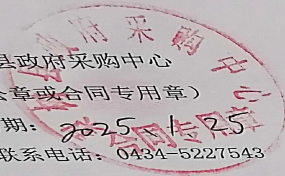 县政府采购中心
公章或合同专用章）
期：2025.1.25
联系电话：0434-5227543
政府采购中心
合同专用章